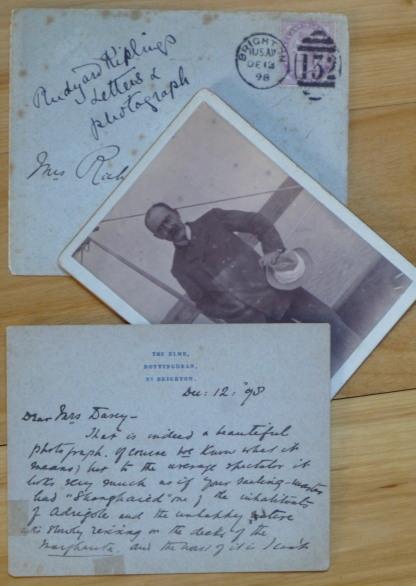 Rudyard Kiplings
Letters &
photograph
Mrs
BRIGHTON
DE 12
98
132
THE ELMS,
ROTTINGDEAN,
Nr BRIGHTON.
Dec: 12. '98
Dear Mrs Dasey -
That is indeed a beautiful
photograph. Of course we know what it
means; but to the average spectator it
looks very much as if your sailing-master
had "Shanghaied" one of the inhabitants
of Adrigole and the unhappy
is slowly reviving on the decks of the
and the worst of it is I can't